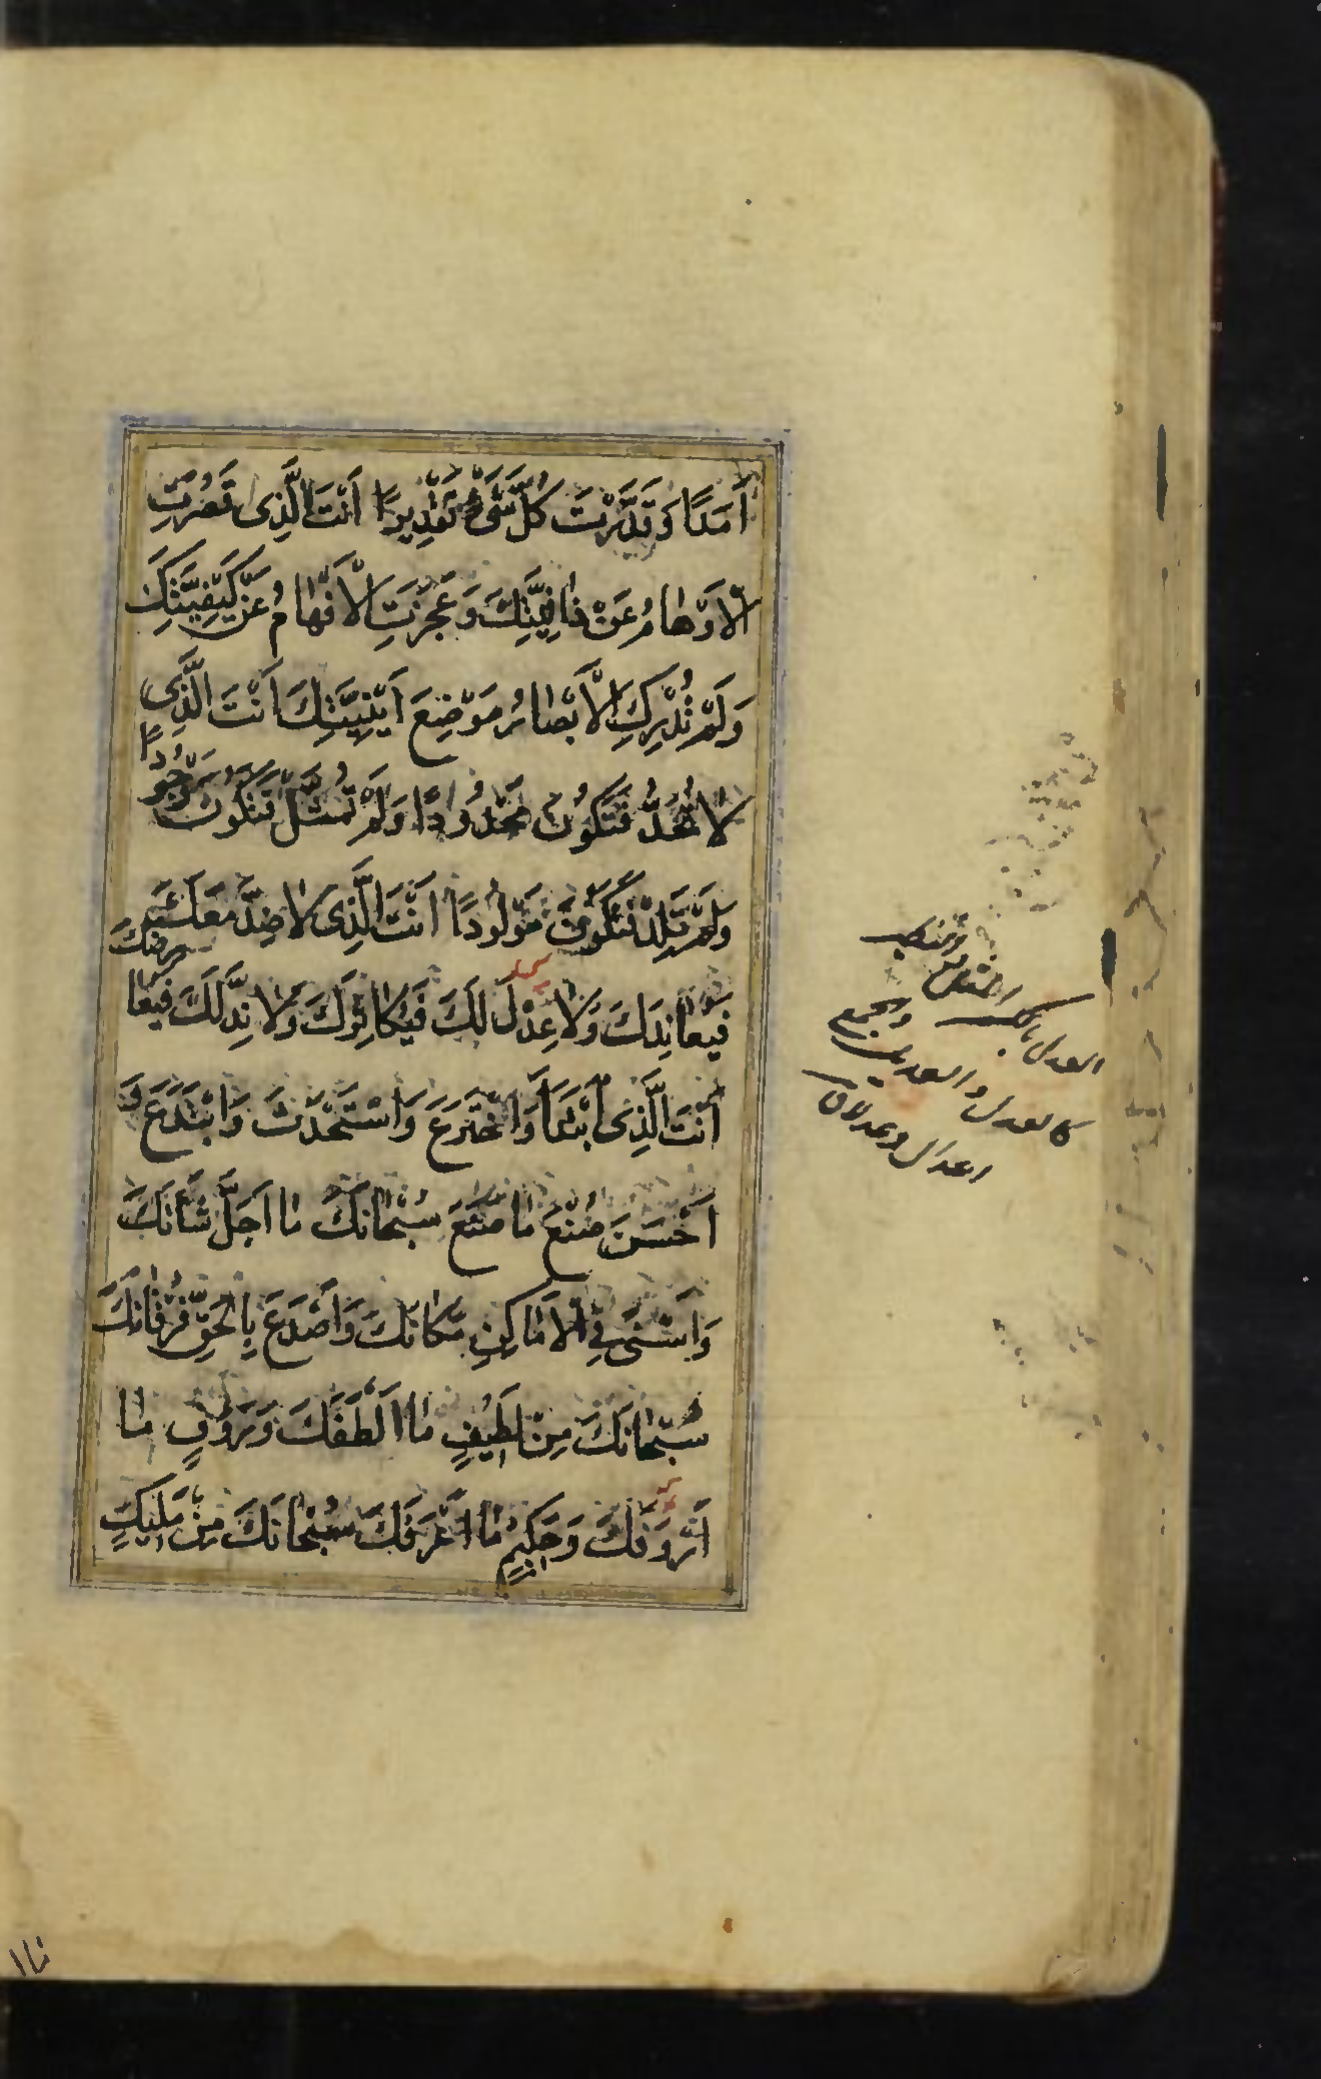 اَمَدًا وَقَدَّرْتَ كُلَّ شَیْءٍ تَقْدِیرًا اَنْتَ الَّذِی قَصُرَتِ
الْاَوْهامُ عَنْ ذاتِیَّتِكَ وَعَجَزَتِ الْاَفْهامُ عَنْ كَیْفِیَّتِكَ
وَلَمْ تُدْرِكِ الْاَبْصارُ مَوْضِعَ اَیْنِیَّتِكَ اَنْتَ الَّذِی
لا تُحَدُّ فَتَكُونَ مَحْدُودًا وَلَمْ تُمَثَّلْ فَتَكُونَ مَوْجُودًا
وَلَمْ تَلِدْ فَتَكُونَ مَوْلُودًا اَنْتَ الَّذِی لا ضِدَّ مَعَكَ
فَیُعانِدَكَ وَلا عِدْلَ لَكَ فَیُكاثِرَكَ وَلا نِدَّ لَكَ فَیُعارِضَكَ
اَنْتَ الَّذِی ابْتَدَاَ وَاخْتَرَعَ وَاسْتَحْدَثَ وَابْتَدَعَ وَ
اَحْسَنَ صُنْعَ ما صَنَعَ سُبْحانَكَ ما اَجَلَّ شَأْنَكَ
وَاَسْنی فِی الْاَماكِنِ مَكانَكَ وَاَصْدَعَ بِالْحَقِّ فُرْقانَكَ
سُبْحانَكَ مِنْ لَطِیفٍ ما اَلْطَفَكَ وَرَؤُفٍ ما
اَرْوَفَكَ وَحَكِیمٍ ما اَعْرَفَكَ سُبْحانَكَ مِنْ مَلِیكٍ
العدل بالكسر المثل
والعدیل ویجمع
اعدال وعدلاء ق